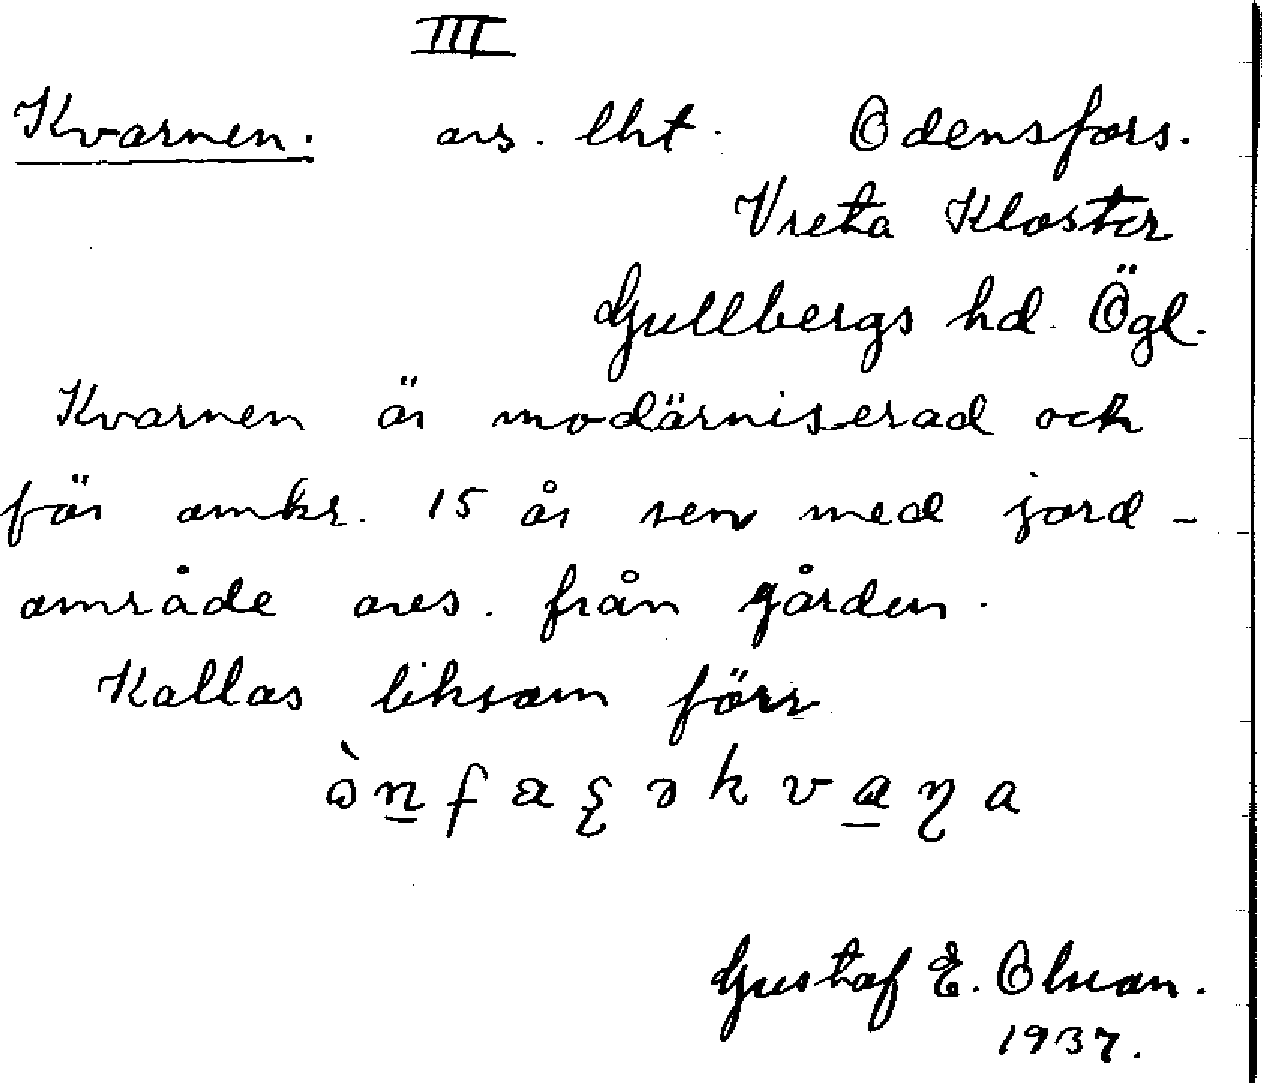 III
Kvarnen. avs. lht. Odensfors.
Vreta Kloster
Gullbergs hd. Ögl.
Kvarnen är modärniserad och
för omkr. 15 år sen med jord-
område avs. från gården.
Kallas liksom förr
Gustaf E. Olson.
1937.